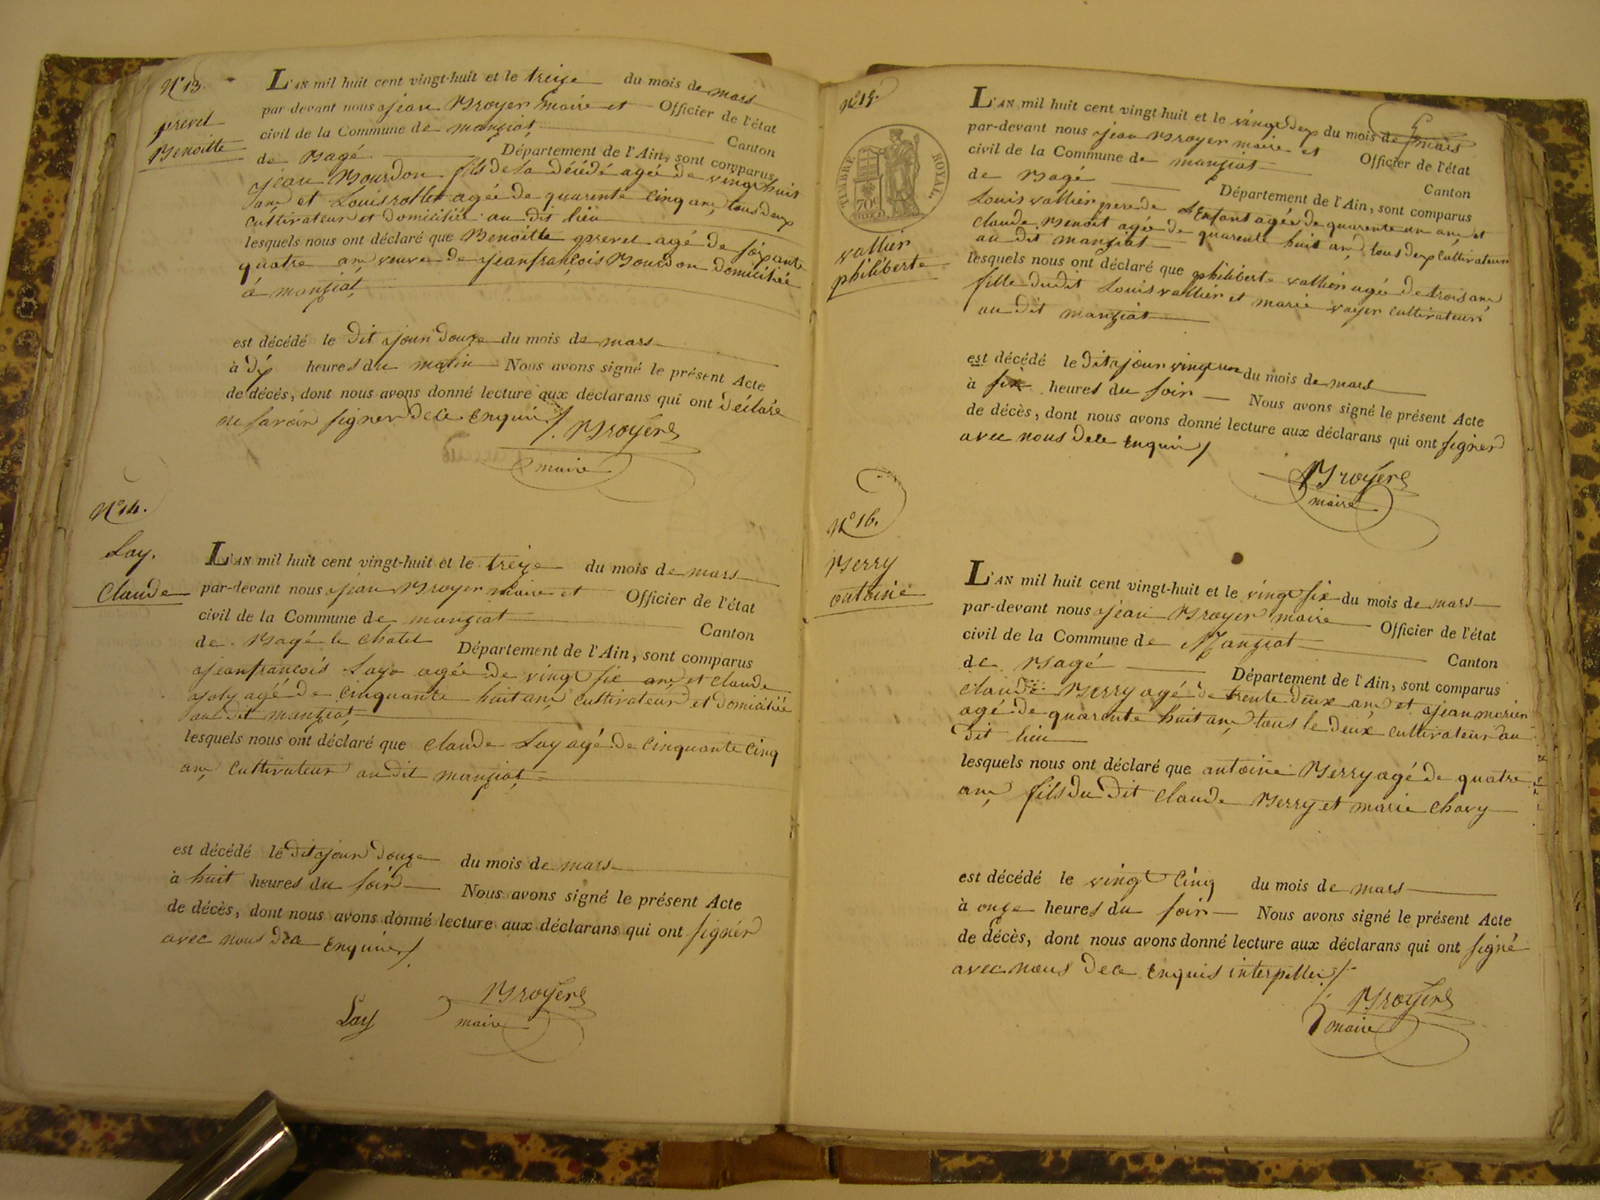 N° 13.
prevel
Benoitte
L'AN mil huit cent vingt-huit et le treize du mois de mars
par-devant nous jean Broyer maire et Officier de l'état
civil de la Commune de manziat Canton
de Bagé Département de l'Ain, sont comparus
jean Bourdon fils de la décédé agée de vingt huit
ans et Louis rollet agée de quarente cinq ans tous deux
cultivateur et domiciliée au dit lieu
lesquels nous ont déclaré que Benoitte prevel agé de soixante
quatre ans veuve de jeanfrançois Bourdon domiciliée
à manziat
est décédé le dit jour douze du mois de mars
à dix heures du matin Nous avons signé le présent Acte
de décès, dont nous avons donné lecture aux déclarans qui ont déclaré
ne savoir signer de ce enquis
Broyer
maire
N° 14.
Lay.
Claude
L'AN mil huit cent vingt-huit et le treize du mois de mars
par-devant nous jean Broyer maire et Officier de l'état
civil de la Commune de manziat Canton
de Bagé le chatel Département de l'Ain, sont comparus
jeanfrancois Lay agée de vingt six ans et claude
joly agé de cinquante huit ans cultivateur et domiciliée
au dit manziat
lesquels nous ont déclaré que claude Lay agé de cinquante cinq
ans cultivateur au dit manziat
est décédé le dit jour douze du mois de mars
à huit heures du soir Nous avons signé le présent Acte
de décès, dont nous avons donné lecture aux déclarans qui ont signér
avec nous de ce enquis
Lay
Broyer
maire
N° 15.
TIMBRE ROYAL
70c
vallier
philiberte
L'AN mil huit cent vingt-huit et le vingt deux du mois de mars
par-devant nous jean Broyer maire et Officier de l'état
civil de la Commune de manziat Canton
de Bagé Département de l'Ain, sont comparus
Louis vallier pere de l'Enfant agée de quarente un ans et
claude Benoit agé de quarente huit ans tous deux cultivateur
au dit manziat
lesquels nous ont déclaré que philiberte vallier agé de trois ans
fille du dit Louis vallier et marie voyer cultivateur
au dit manziat
est décédé le dit jour vingt un du mois de mars
à six heures du soir Nous avons signé le présent Acte
de décès, dont nous avons donné lecture aux déclarans qui ont signer
avec nous de ce enquis
Broyer
maire
N° 16.
Berry
antoine
L'AN mil huit cent vingt-huit et le vingt six du mois de mars
par-devant nous jean Broyer maire Officier de l'état
civil de la Commune de Manziat Canton
de Bagé Département de l'Ain, sont comparus
claude Berry agé de trente deux ans et jean morier
agé de quarente huit ans tous le deux cultivateur au
dit lieu
lesquels nous ont déclaré que antoine Berry agé de quatre
ans fils du dit claude Berry et marie chavy
est décédé le vingt cinq du mois de mars
à onze heures du soir Nous avons signé le présent Acte
de décès, dont nous avons donné lecture aux déclarans qui ont signé
avec nous de ce enquis interpeller
Broyer
maire